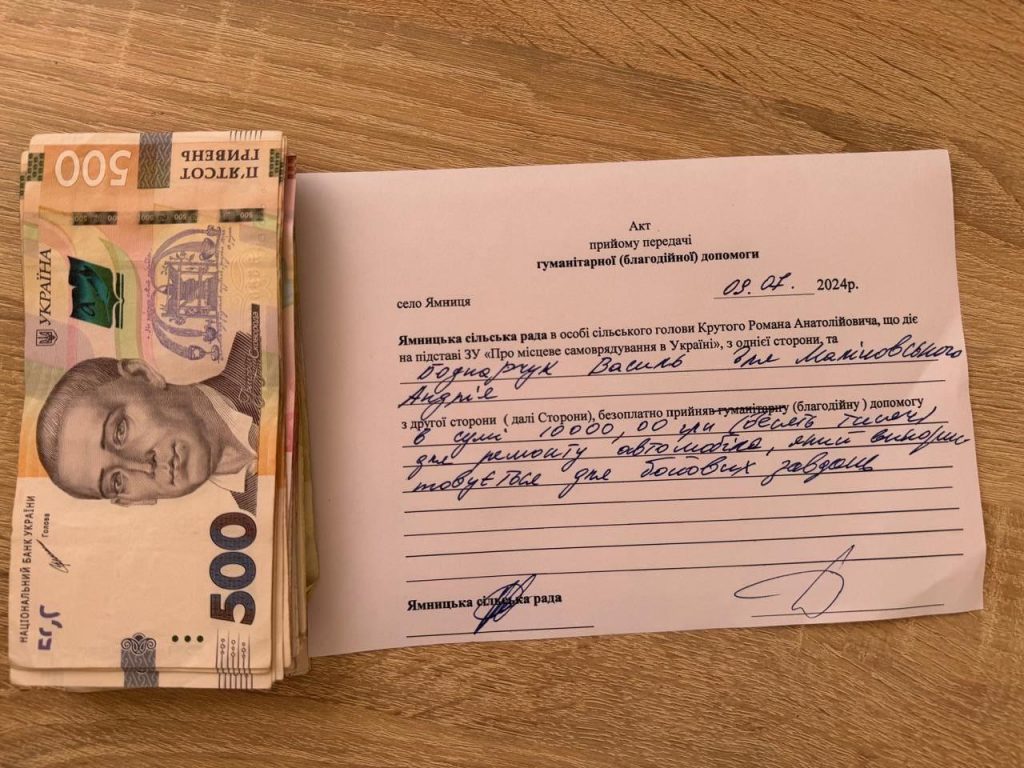 500
П'ЯТСОТ
ГРИВЕНЬ
УКРАЇНА
НАЦІОНАЛЬНИЙ БАНК УКРАЇНИ
Голова
500
Акт
прийому передачі
гуманітарної (благодійної) допомоги
09.07. 2024р.
село Ямниця
Ямницька сільська рада в особі сільського голови Крутого Романа Анатолійовича, що діє
на підставі ЗУ «Про місцеве самоврядування в Україні», з однієї сторони, та
Боднарчук Василь для Маліновського
Андрія
з другої сторони ( далі Сторони), безоплатно прийняв гуманітарну (благодійну ) допомогу
в сумі 10000,00 грн (десять тисяч)
для ремонту автомобіля, який викорис
товується для бойових завдань
Ямницька сільська рада